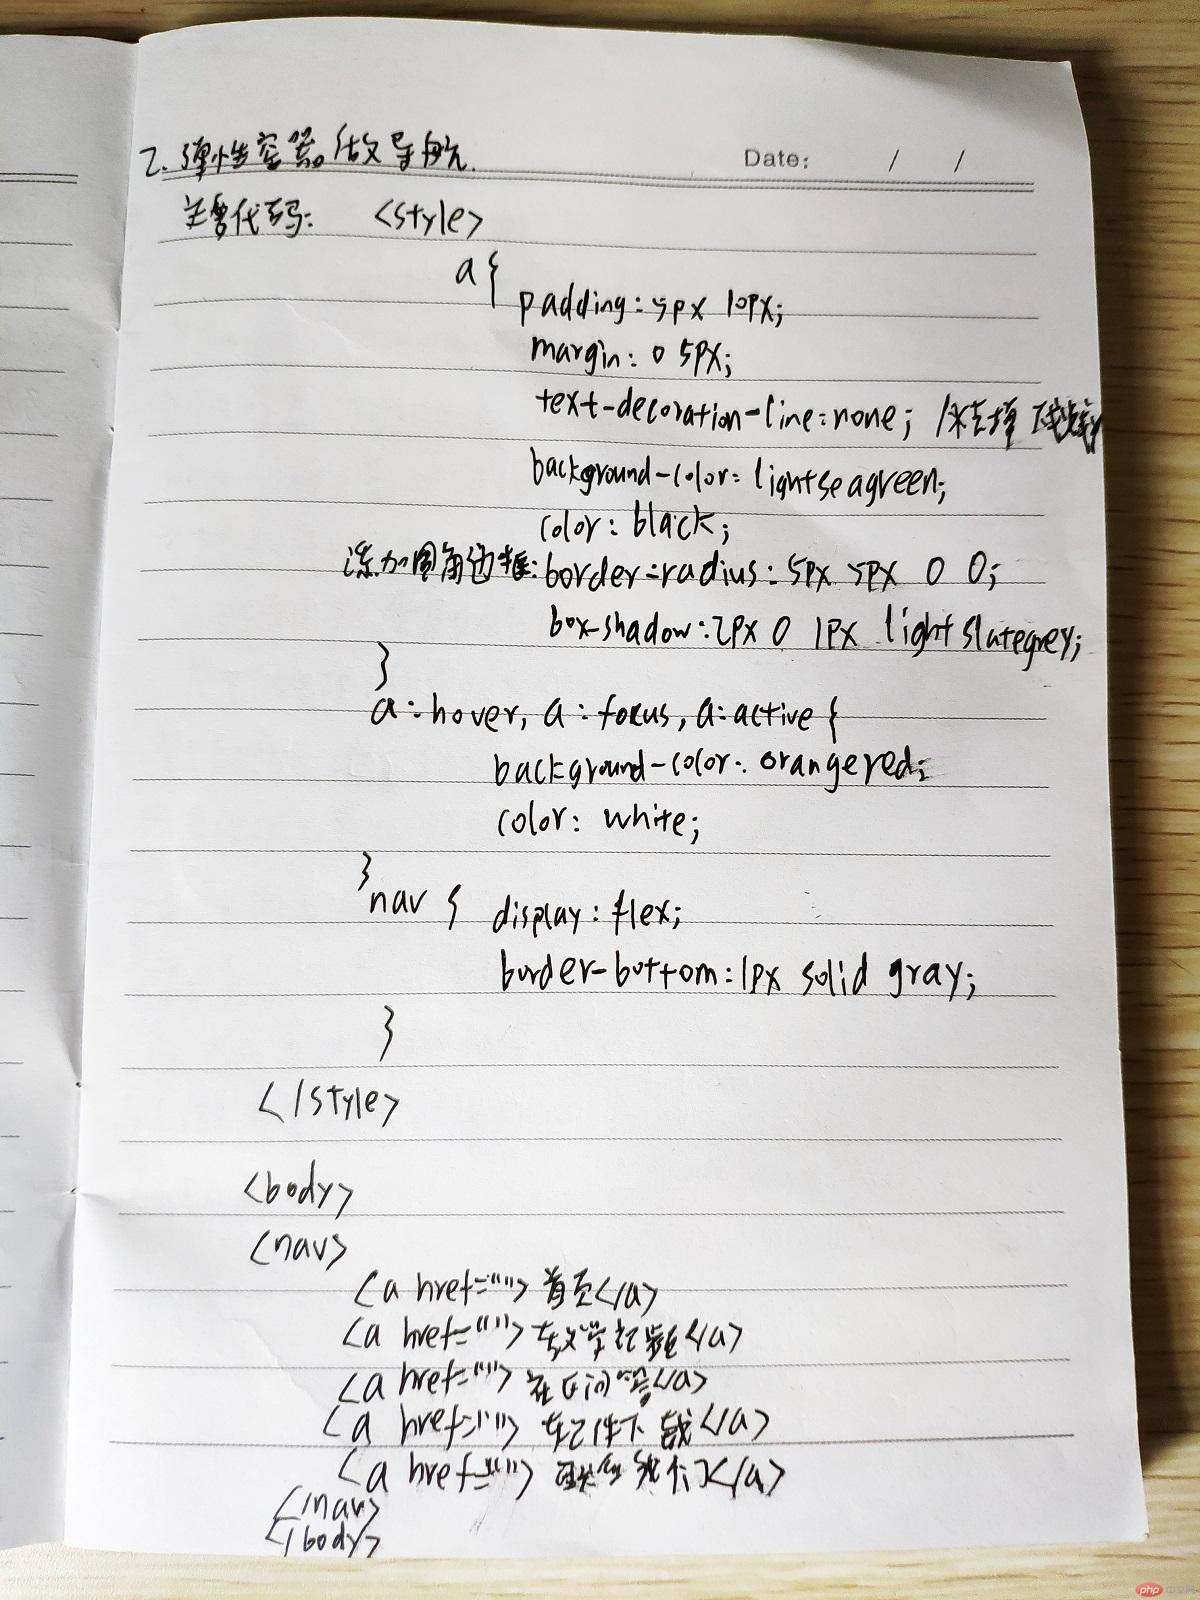 2.弹性容器做导航.
Date: / /
主要代码: <style>
a {
padding: 5px 10px;
margin: 0 5px;
text-decoration-line: none; /*去掉下划线
background-color: lightseagreen;
color: black;
添加圆角边框: border-radius: 5px 5px 0 0;
box-shadow: 2px 0 1px lightslategrey;
}
a:hover, a:focus, a:active {
background-color: orangered;
color: white;
}
nav { display: flex;
border-bottom: 1px solid gray;
}
</style>
<body>
<nav>
<a href="">首页</a>
<a href="">教学视频</a>
<a href="">在线问答</a>
<a href="">软件下载</a>
<a href="">联系我们</a>
</nav>
</body>
php 中文网